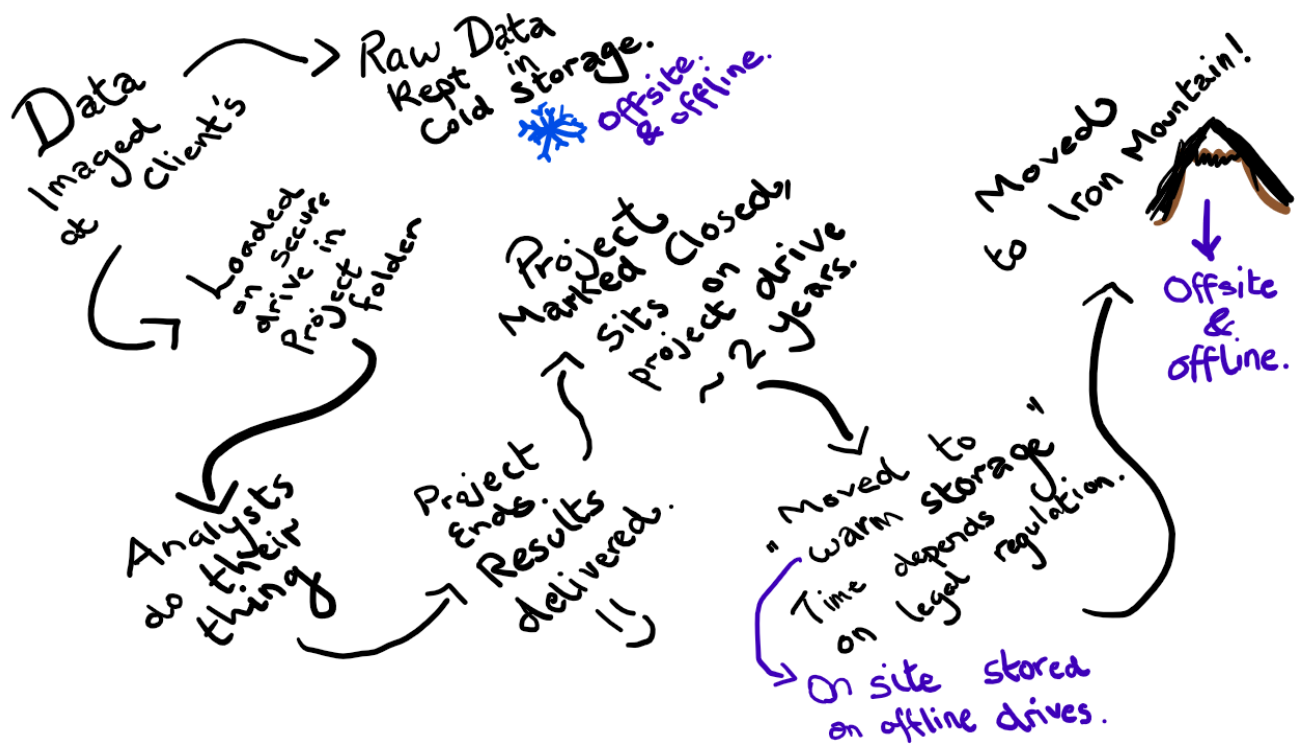 Data
Imaged
at Client's
Raw Data
Kept in
Cold Storage.
Offsite.
& offline.
Loaded
on secure
drive in
Project
folder
Analysts
do their
thing
Project
Ends.
Results
delivered.
Project
Marked Closed,
Sits on
project drive
~ 2 years.
Moved to
"warm storage"
Time depends
on legal regulation.
On site stored
on offline drives.
Moved
to Iron Mountain!
Offsite
&
offline.